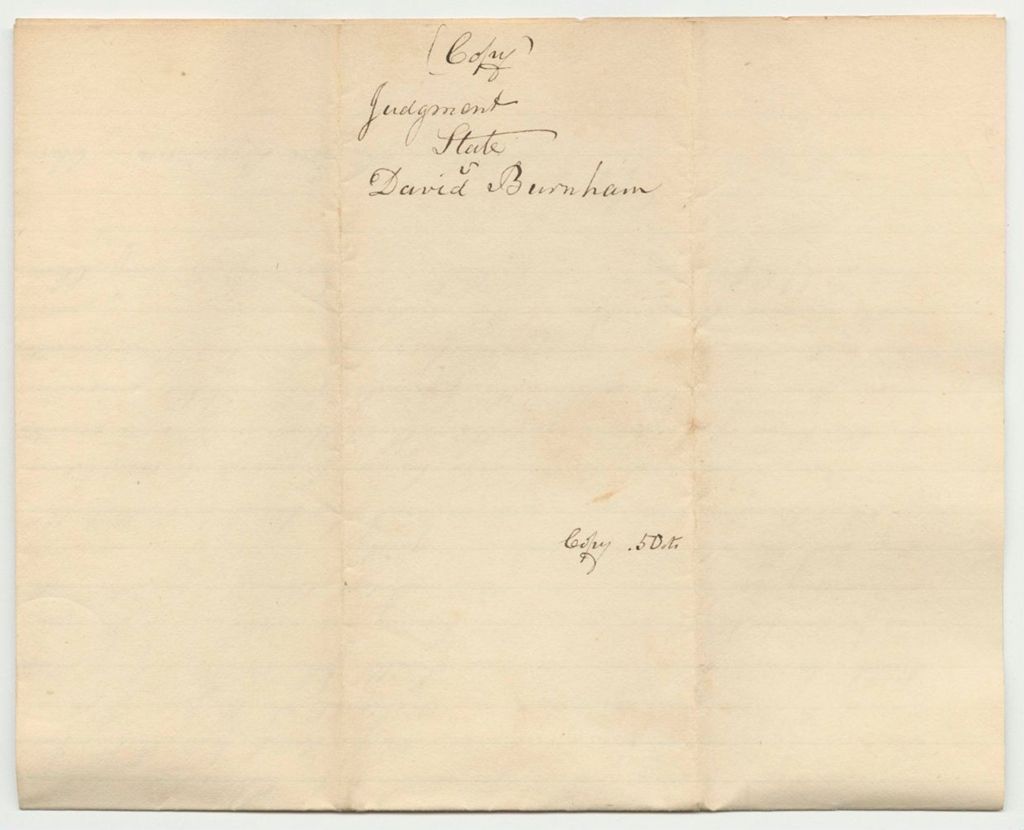 (Copy)
Judgment
State
vs
David Burnham
Copy .50cts